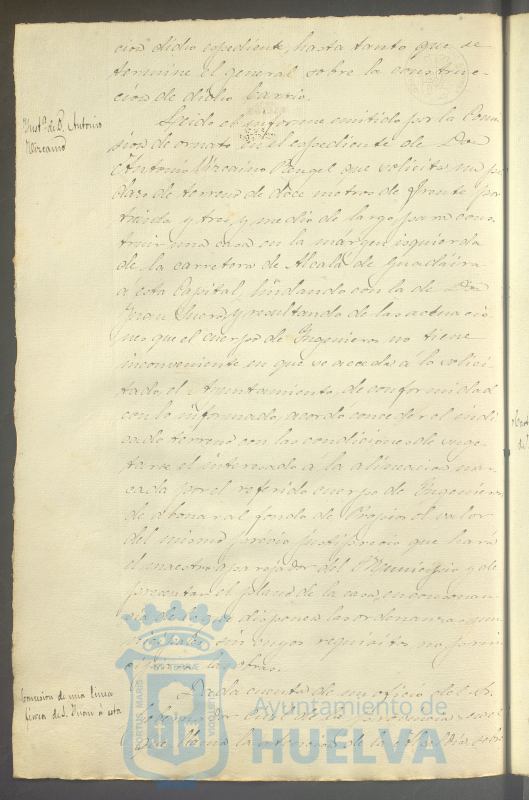 cion dicho espediente, hasta tanto que se
termine el general sobre la construc-
cion de dicho barrio.
Inst.ª de D. Antonio
Vizcaino
Leido el informe emitido por la Comi-
sion de ornato en el espediente de Don
Antonio Vizcaino Rengel que solicita un pe-
dazo de terreno de doce metros de frente por
treinta y tres y medio de largo para cons-
truir una casa en la márgen izquierda
de la carretera de Alcalá de Guadaira
á esta Capital, lindando con la de Don
Juan y resultando de las actuacio-
nes que el cuerpo de Ingenieros no tiene
inconveniente en que se acceda á lo solici-
tado, el Ayuntamiento, de conformidad
con lo informado, acordó conceder el indi-
cado terreno con las condiciones de suge-
tarse el interesado á la alineacion mar-
cada por el referido cuerpo de Ingenieros,
de abonar al fondo de Propios el valor
del mismo, previo justiprecio que hará
el maestro aparejador del Municipio y de
presentar el plano de la casa, en consonan-
cia de lo que disponen las ordenanzas muni-
cipales, sin cuyos requisitos no
las obras.
Concesion de una linea
ferrea de S. Juan á esta
Dada cuenta de un oficio del S.
Gobernador Civil de la provincia en el
que llama la atencion de la
PORTUS MARIS
Ayuntamiento de
HUELVA